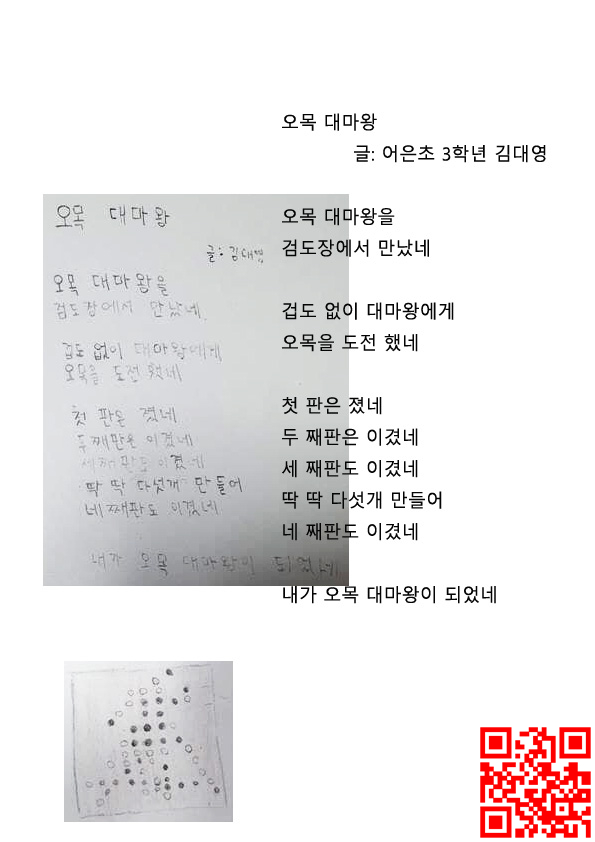 오목 대마왕
글: 어은초 3학년 김대영
오목 대마왕을
검도장에서 만났네
겁도 없이 대마왕에게
오목을 도전 했네
첫 판은 졌네
두 째판은 이겼네
세 째판도 이겼네
딱 딱 다섯개 만들어
네 째판도 이겼네
내가 오목 대마왕이 되었네
오목 대마왕
글: 김대영
오목 대마왕을
검도장에서 만났네
겁도 없이 대마왕에게
오목을 도전 했네
첫 판은 졌네
두째판은 이겼네
세째판도 이겼네
딱 딱 다섯개 만들어
네째판도 이겼네
내가 오목 대마왕이 되었네